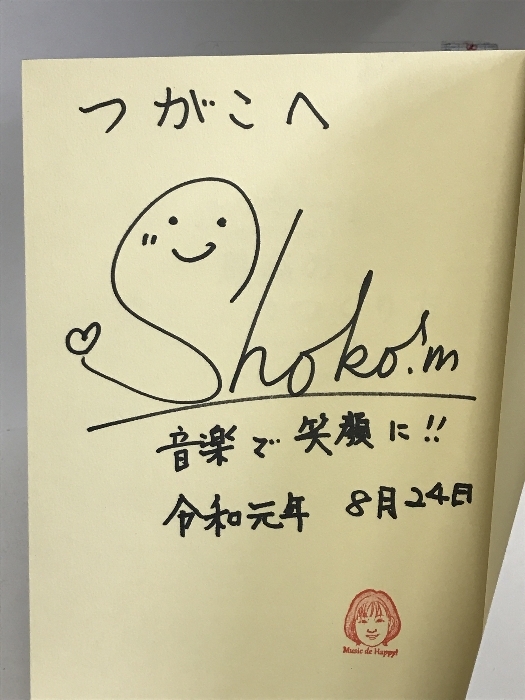 つがこへ
Shoko.m
音楽で笑顔に!!
令和元年 8月24日
Music de Happy!